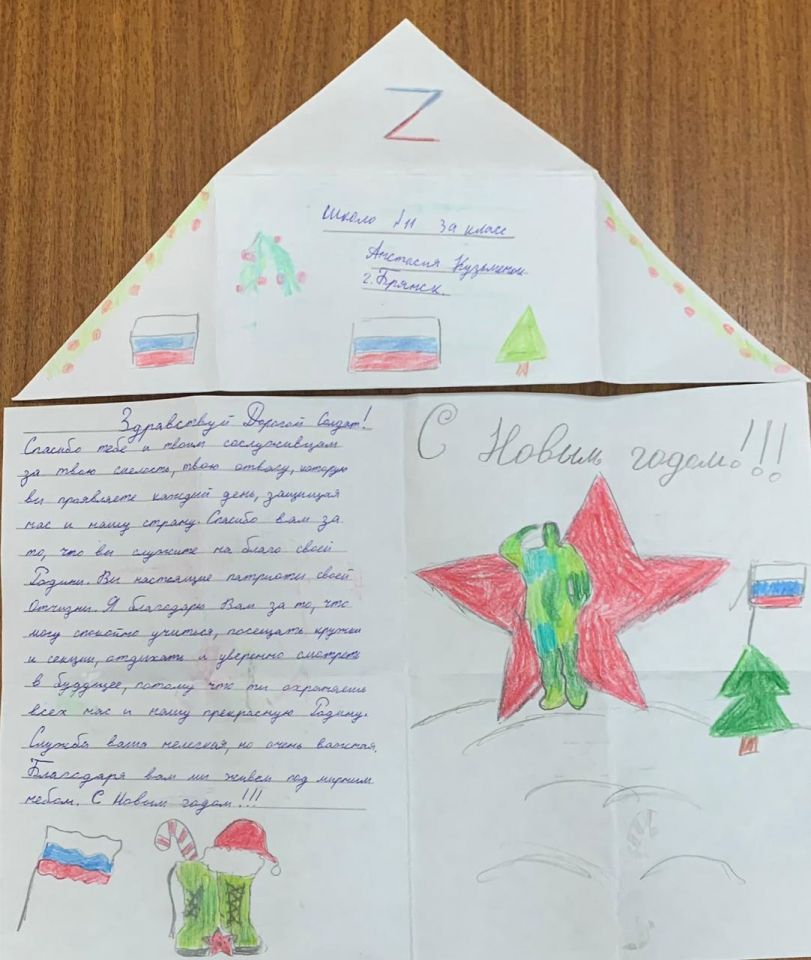 Z
Школа №11 3а класс
Анастасия Кузьменок
г. Брянск.
Здравствуй Дорогой Солдат!
Спасибо тебе и твоим сослуживцам
за твою смелость, твою отвагу, которую
вы проявляете каждый день, защищая
нас и нашу страну. Спасибо вам за
то, что вы служите на благо своей
Родины. Вы настоящие патриоты своей
Отчизны. Я благодарю Вам за то, что
могу спокойно учиться, посещать кружки
и секции, отдыхать и уверенно смотреть
в будущее, потому что ты охраняешь
всех нас и нашу прекрасную Родину.
Служба ваша нелегкая, но очень важная.
Благодаря вам мы живем под мирным
небом. С Новым годом!!!
С Новым годом!!!